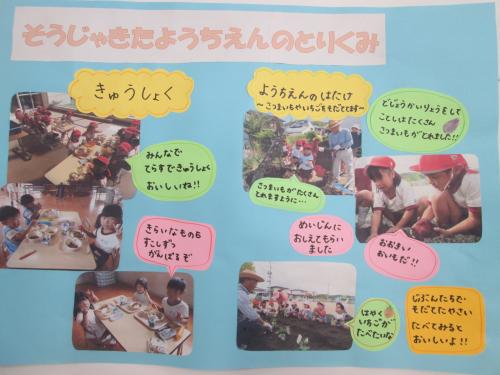 そうじゃきたようちえんのとりくみ
きゅうしょく
みんなで
てらすできゅうしょく
おいしいね!!
きらいなものも
すこしずつ
がんばるぞ
ようちえんのはたけ
～さつまいもやいちごをそだててます～
どじょうかいりょうをして
ことしはたくさん
さつまいもがとれました!!
さつまいもがたくさん
とれますように…
めいじんに
おしえてもらい
ました
おおきい
おいもだ!!
はやく
いちごが
たべたいな
じぶんたちで
そだてたやさい
たべてみると
おいしいよ!!